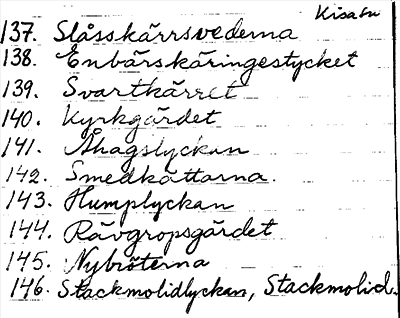 Kisa sn
137. Slåsskärrsvederna
138. Enbärskäringestycket
139. Svartkärret
140. Kyrkgärdet
141. Åhagslyckan
142. Smedkättarna.
143. Humplyckan
144. Rävgropsgärdet
145. Nybröterna
146. Stackmolidlyckan, Stackmolid.